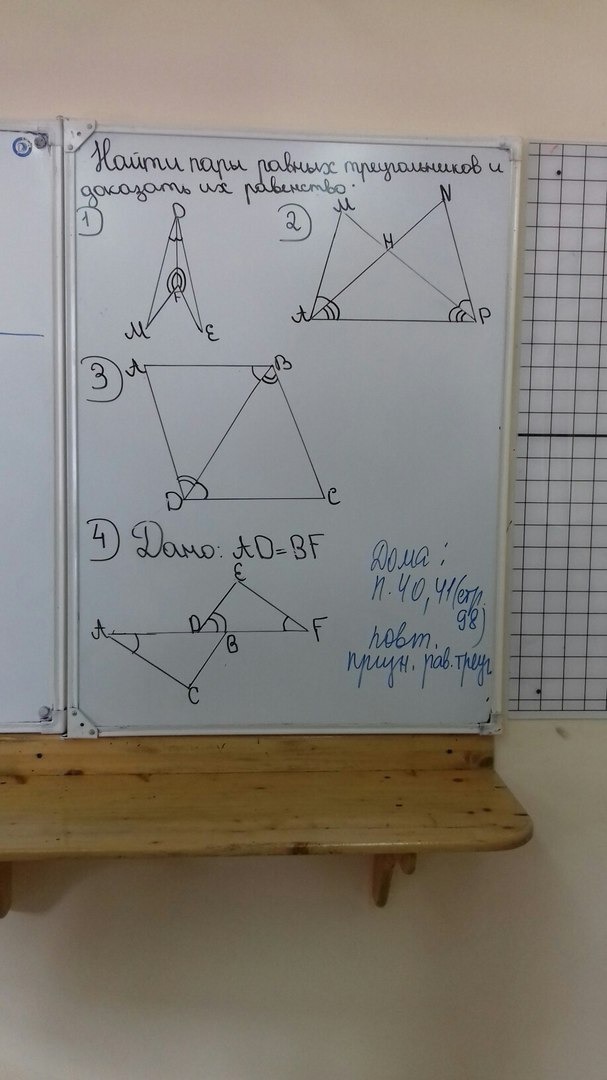 Найти пары равных треугольников и
доказать их равенство.
1)
D
F
M
E
2)
M
N
H
A
P
3)
A
B
D
C
4) Дано: AD=BF
E
A
D
B
F
C
Дома:
п. 40, 41 (стр.
98)
повт.
призн. рав. треуг